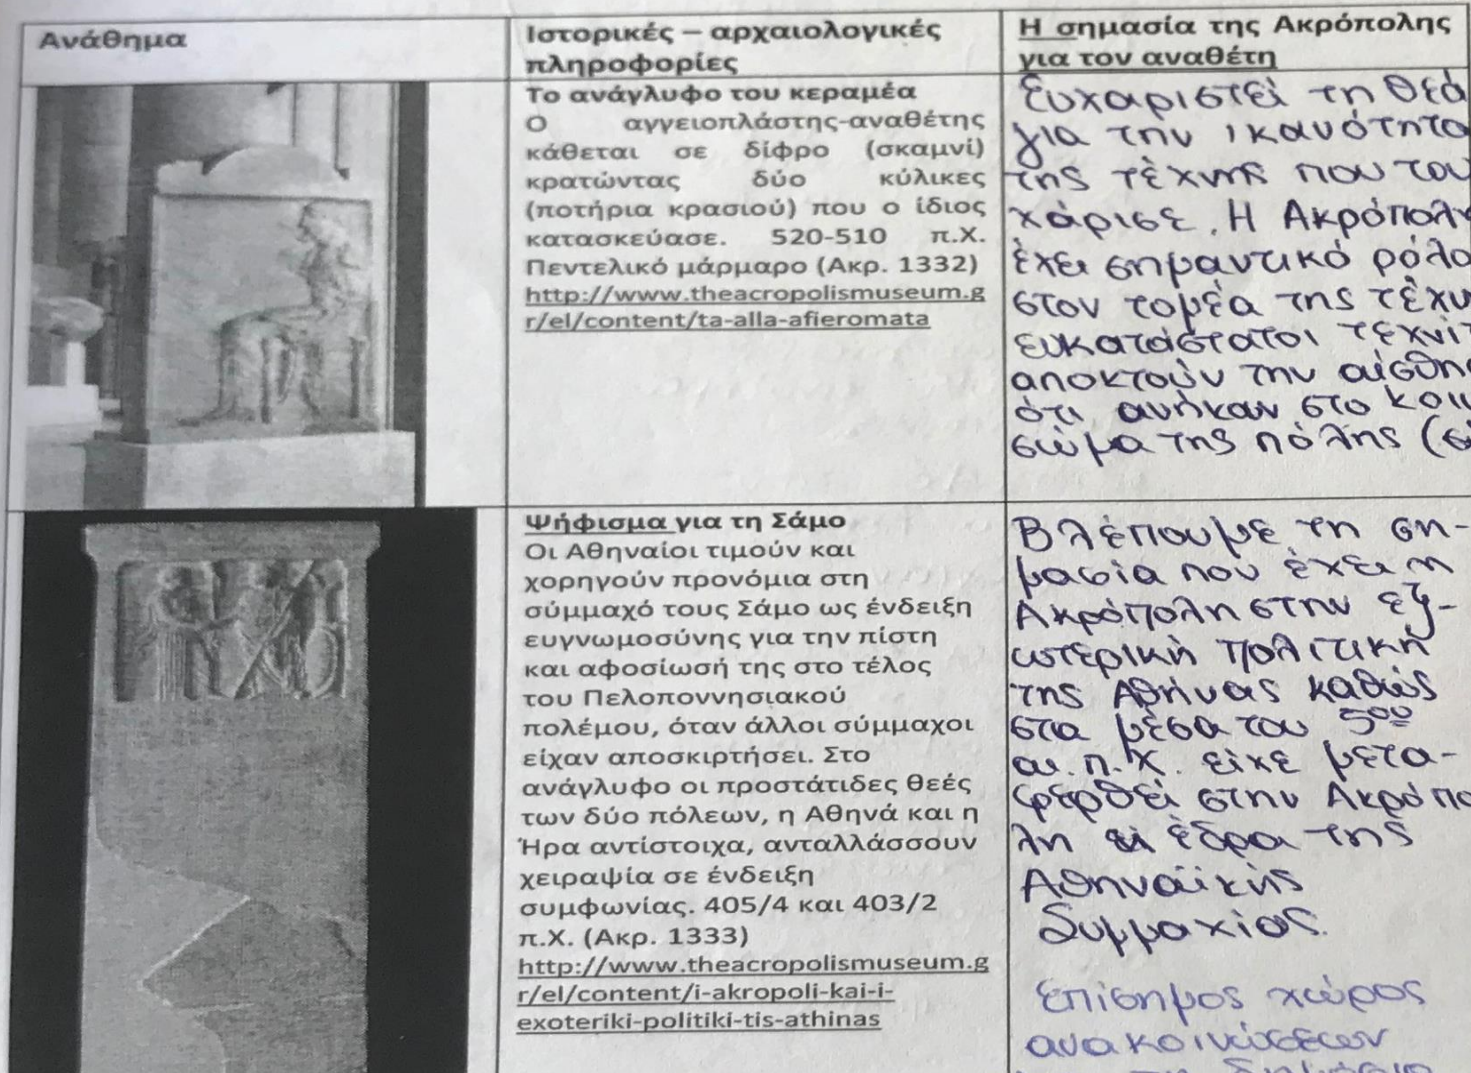 Ανάθημα
Ιστορικές – αρχαιολογικές
πληροφορίες
Η σημασία της Ακρόπολης
για τον αναθέτη
Το ανάγλυφο του κεραμέα
Ο αγγειοπλάστης-αναθέτης
κάθεται σε δίφρο (σκαμνί)
κρατώντας δύο κύλικες
(ποτήρια κρασιού) που ο ίδιος
κατασκεύασε. 520-510 π.Χ.
Πεντελικό μάρμαρο (Ακρ. 1332)
http://www.theacropolismuseum.g
r/el/content/ta-alla-afieromata
Ευχαριστεί τη θεά
για την ικανότητα
της τέχνης που του
χάρισε. Η Ακρόπολη
έχει σημαντικό ρόλο
στον τομέα της τέχν
ευκατάστατοι τεχνίτ
αποκτούν την αίσθησ
ότι ανήκαν στο κοιν
σώμα της πόλης (σ
Ψήφισμα για τη Σάμο
Οι Αθηναίοι τιμούν και
χορηγούν προνόμια στη
σύμμαχό τους Σάμο ως ένδειξη
ευγνωμοσύνης για την πίστη
και αφοσίωσή της στο τέλος
του Πελοποννησιακού
πολέμου, όταν άλλοι σύμμαχοι
είχαν αποσκιρτήσει. Στο
ανάγλυφο οι προστάτιδες θεές
των δύο πόλεων, η Αθηνά και η
Ήρα αντίστοιχα, ανταλλάσσουν
χειραψία σε ένδειξη
συμφωνίας. 405/4 και 403/2
π.Χ. (Ακρ. 1333)
http://www.theacropolismuseum.g
r/el/content/i-akropoli-kai-i-
exoteriki-politiki-tis-athinas
Βλέπουμε τη ση-
μασία που έχει η
Ακρόπολη στην εξ-
ωτερική πολιτική
της Αθήνας καθώς
στα μέσα του 5ου
αι. π.Χ. είχε μετα-
φερθεί στην Ακρόπο
λη η έδρα της
Αθηναϊκής
Συμμαχίας.
Επίσημος χώρος
ανακοινώσεων